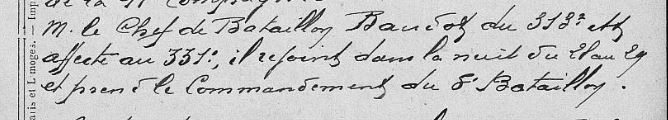 de la
M. le Chef de Bataillon du 313e est
affecté au 331e, il rejoint dans la nuit du 28 au 29
et prend le Commandement du Bataillon.
Paris et Limoges. — Imp